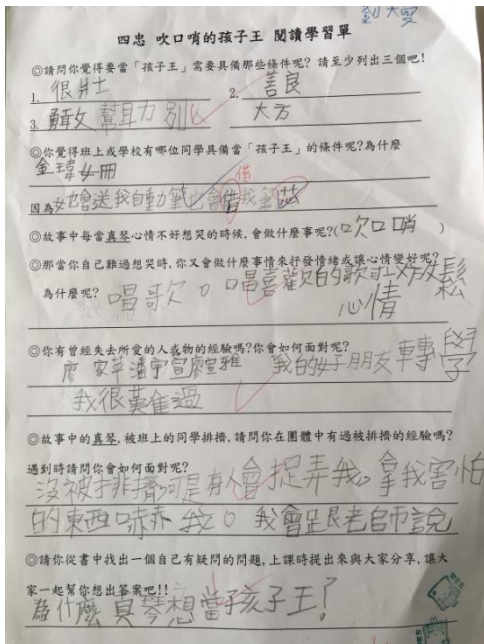 劉大雯
四忠 吹口哨的孩子王 閱讀學習單
◎請問你覺得要當「孩子王」需要具備那些條件呢? 請至少列出三個吧!
1. 很壯 2. 善良
3. 勇敢幫助別人 大方
◎你覺得班上或學校有哪位同學具備當「孩子王」的條件呢?為什麼
金瑋姍 借
因為她會送我自動筆也會借我
◎故事中每當真琴心情不好想哭的時候,會做什麼事呢?(吹口哨 )
◎那當你自己難過想哭時,你又會做什麼事情來抒發情緒或讓心情變好呢?
為什麼呢? 唱歌。唱喜歡的歌放鬆
心情
◎你有曾經失去所愛的人或物的經驗嗎?你會如何面對呢?
廖 家苹 潘宇宣 廖宣雅 我的好朋友轉學
我很難過
◎故事中的真琴,被班上的同學排擠,請問你在團體中有過被排擠的經驗嗎?
遇到時請問你會如何面對呢?
沒被排擠可是有人會捉弄我。拿我害怕
的東西嚇我。我會跟老師說
◎請你從書中找出一個自己有疑問的問題,上課時提出來與大家分享,讓大
家一起幫你想出答案吧!!
為什麼真琴想當孩子王?